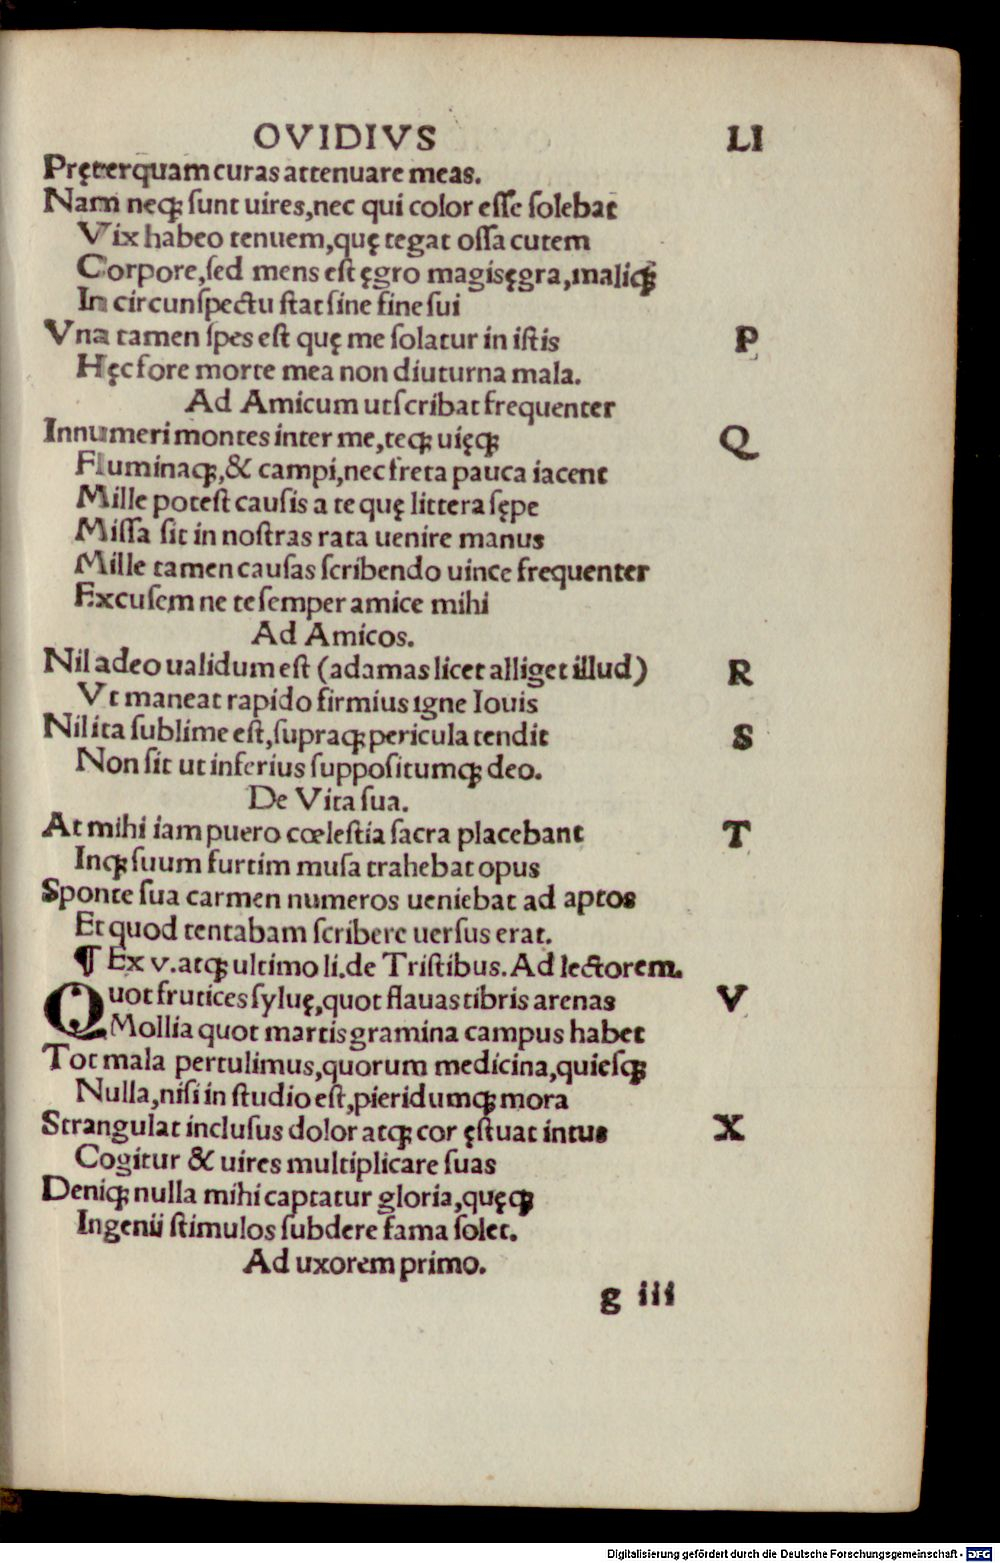 OVIDIVS LI
Pręterquam curas attenuare meas.
Nam neqꝫ sunt uires,nec qui color esse solebat
Vix habeo tenuem,quę tegat ossa cutem
Corpore,sed mens est ęgro magisęgra,maliqꝫ
In circunspectu stat sine fine sui
Vna tamen spes est quę me solatur in istis P
Hęc fore morte mea non diuturna mala.
Ad Amicum utscribat frequenter
Innumeri montes inter me,teqꝫ uięqꝫ Q
Fluminaqꝫ,& campi,nec freta pauca iacent
Mille potest causis a te quę littera sępe
Missa sit in nostras rata uenire manus
Mille tamen causas scribendo uince frequenter
Excusem ne te semper amice mihi
Ad Amicos.
Nil adeo ualidum est (adamas licet alliget illud) R
Vt maneat rapido firmius igne Iouis
Nil ita sublime est,supraqꝫ pericula tendit S
Non sit ut inferius suppositumqꝫ deo.
De Vita sua.
At mihi iam puero cœlestia sacra placebant T
Inqꝫ suum furtim musa trahebat opus
Sponte sua carmen numeros ueniebat ad aptos
Et quod tentabam scribere uersus erat.
¶ Ex v.atqꝫ ultimo li.de Tristibus.Ad lectorem.
Quot frutices syluę,quot flauas tibris arenas V
Mollia quot martis gramina campus habet
Tot mala pertulimus,quorum medicina,quiesqꝫ
Nulla,nisi in studio est,pieridumqꝫ mora
Strangulat inclusus dolor atqꝫ cor ęstuat intus X
Cogitur & uires multiplicare suas
Deniqꝫ nulla mihi captatur gloria,quęqꝫ
Ingenii stimulos subdere fama solet.
Ad uxorem primo.
g iii
Digitalisierung gefördert durch die Deutsche Forschungsgemeinschaft - DFG